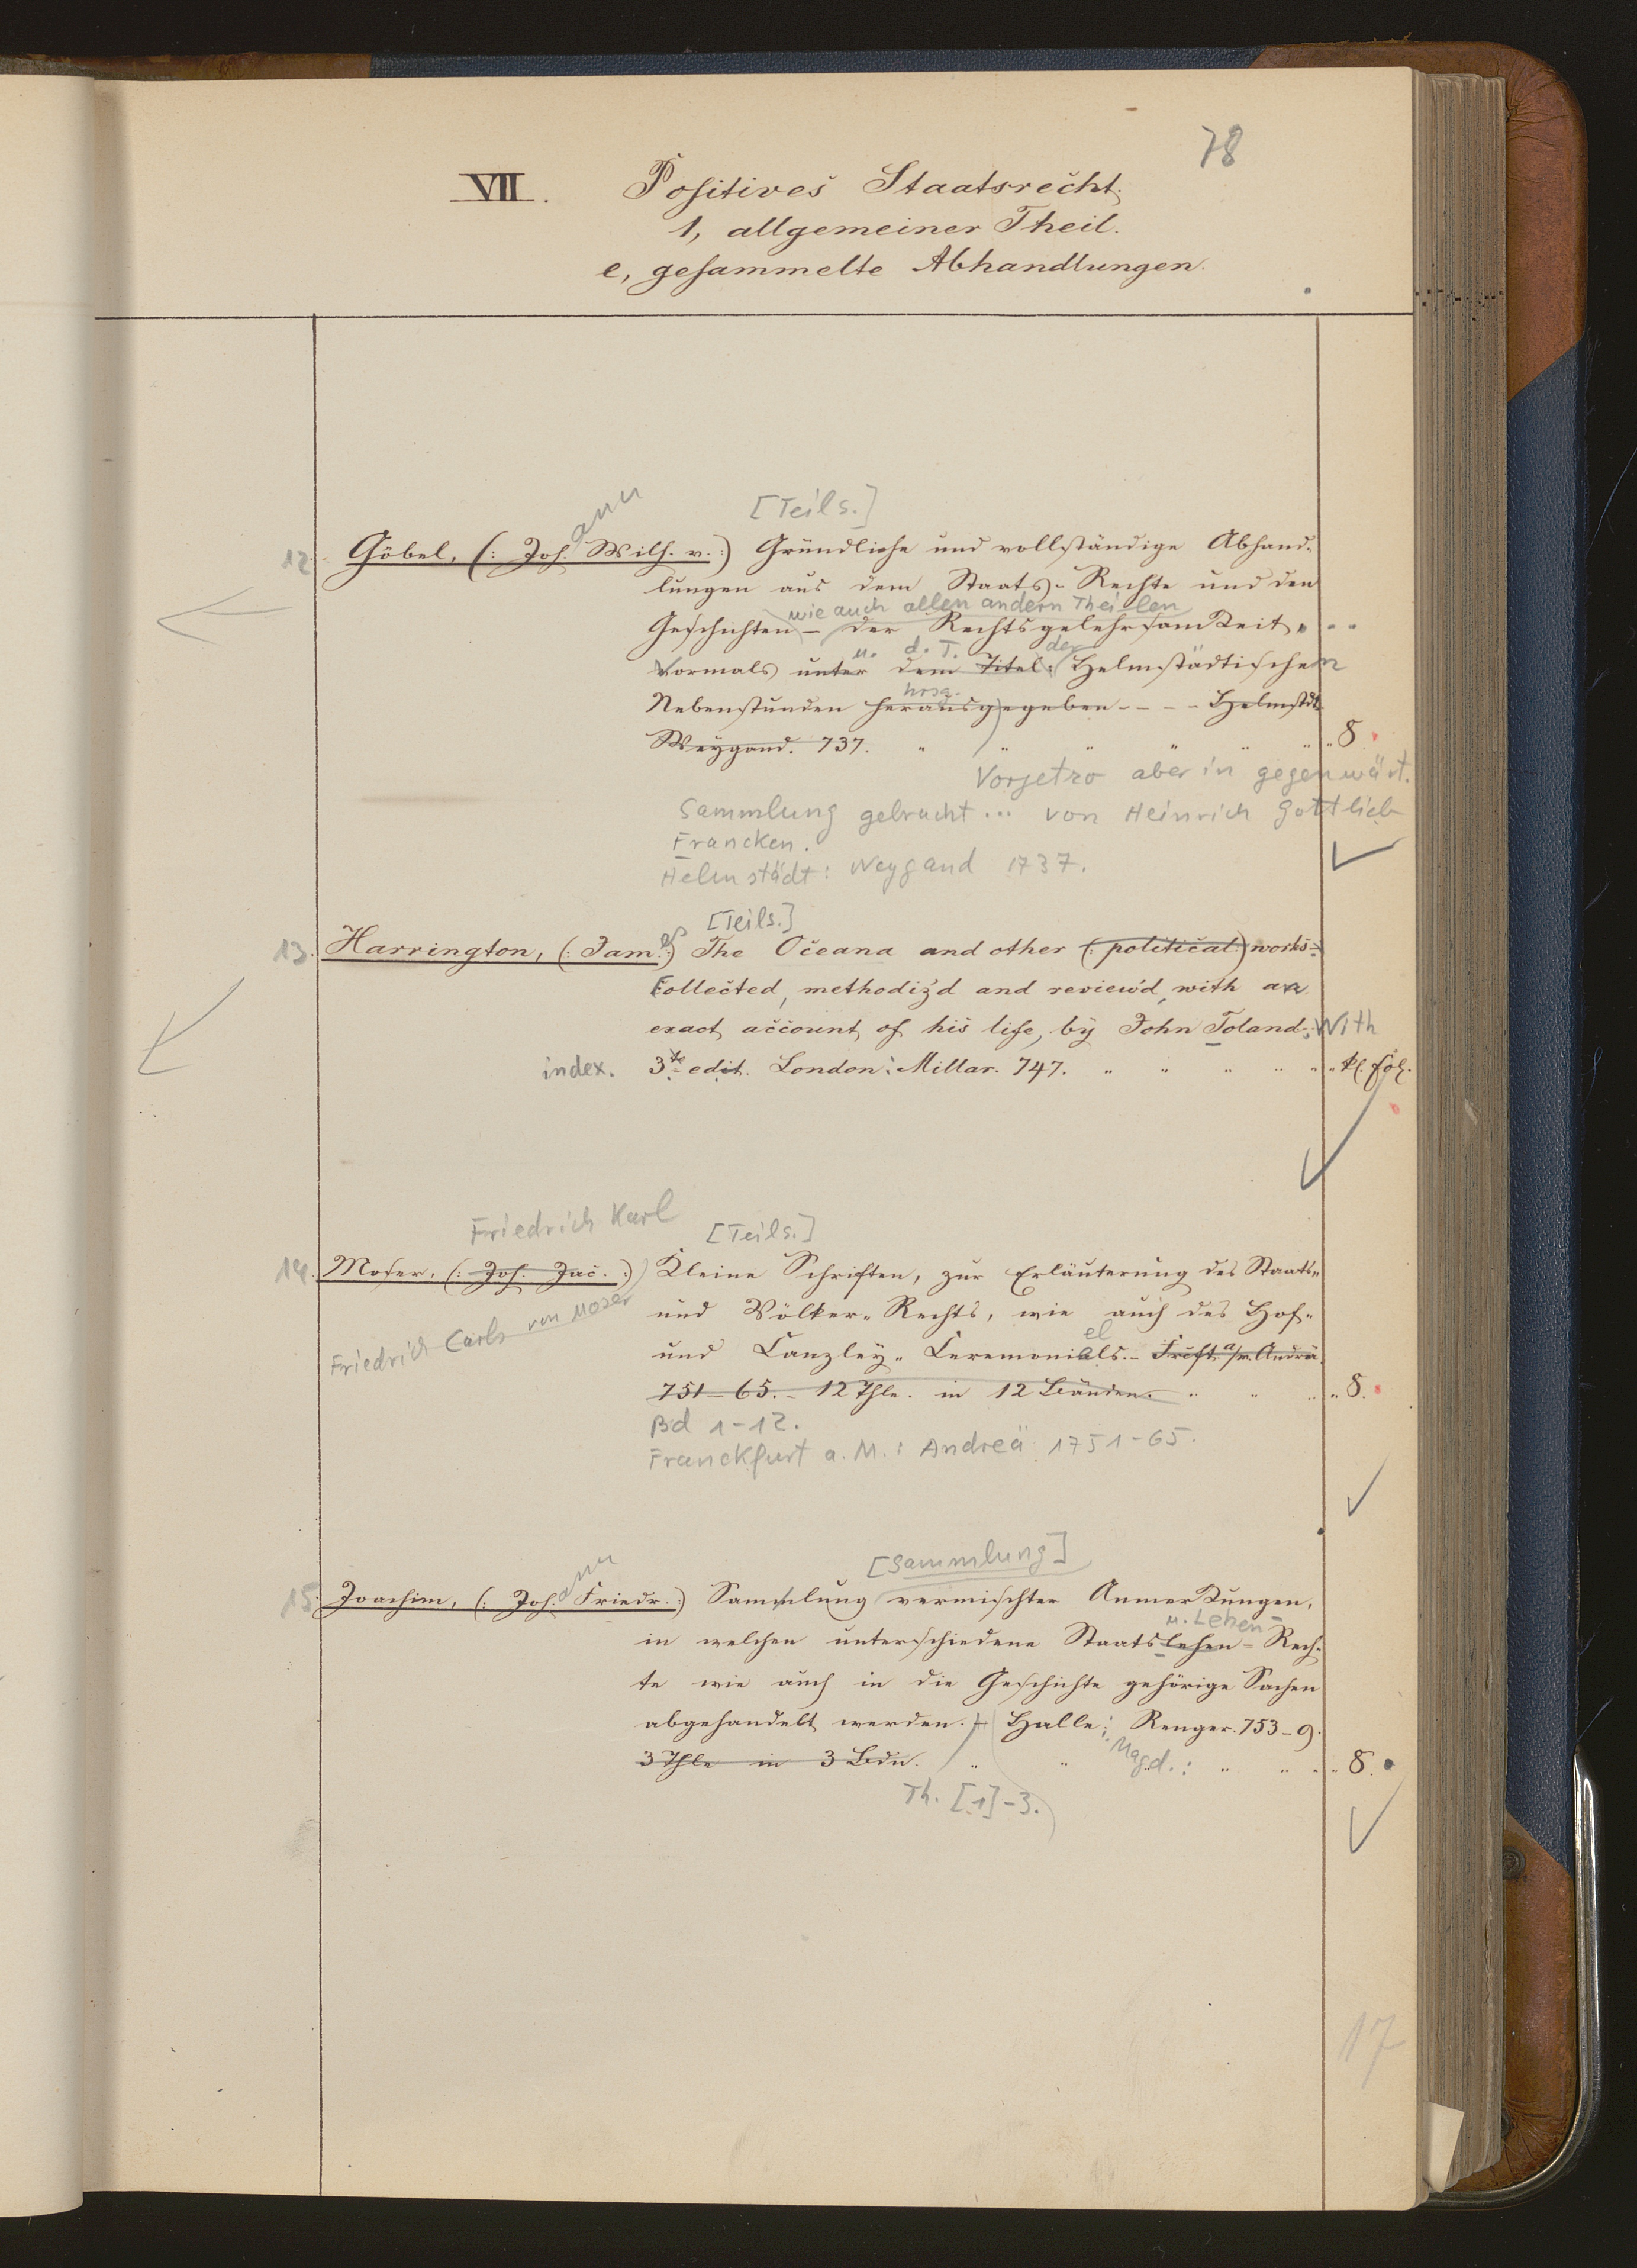 78
VII. Positives Staatsrecht.
1, allgemeiner Theil.
e, gesammelte Abhandlungen.
ann [Teils.]
12. Göbel, (: Joh. Wilh. v. :) Gründliche und vollständige Abhand-
lungen aus dem Staats-Rechte und den
wie auch allen andern Thei-len
Geschichten - der Rechtsgelehrsamkeit
u. d. T. der
vormals unter dem Titel: Helmstädtischen
hrsg.
Nebenstunden herausgegeben - - - - Helmstdt
Weygand. 737. " " " " " " " 8.
Vorjetzo aber in gegenwärt.
Sammlung gebracht... von Heinrich Gottlieb
Francken.
Helmstädt: Weygand 1737.
es [Teils.]
13. Harrington, (: Jam. :) The Oceana and other (: political :) works
Collected, methodiz'd and review'd, with an
exact account of his life, by John Toland. With
index. 3te edit. London: Millar. 747. " " " " " " kl. fol.
Friedrich Karl [Teils.]
14. Moser, (: Joh. Jac. :) Kleine Schriften, zur Erläuterung des Staats-
Friedrich Carls von Moser
und Völker-Rechts, wie auch des Hof-
el
und Canzley-Ceremonials. - Frcft. a/m. Andreä
751-65. - 12 Thle. in 12 Bänden. " " " " 8.
Bd 1-12.
Franckfurt a. M.: Andreä 1751-65.
ann [Sammlung]
15. Joachim, (: Joh. Friedr. :) Sammlung vermischter Anmerkungen,
u. Lehen-
in welchen unterschiedene Staatslehen-Rech-
te wie auch in die Geschichte gehörige Sachen
abgehandelt werden. - Halle: Renger. 753-9.
3 Thle in 3 Bdn. " " Magd.: " " " " 8.
Th. [1]-3.
17